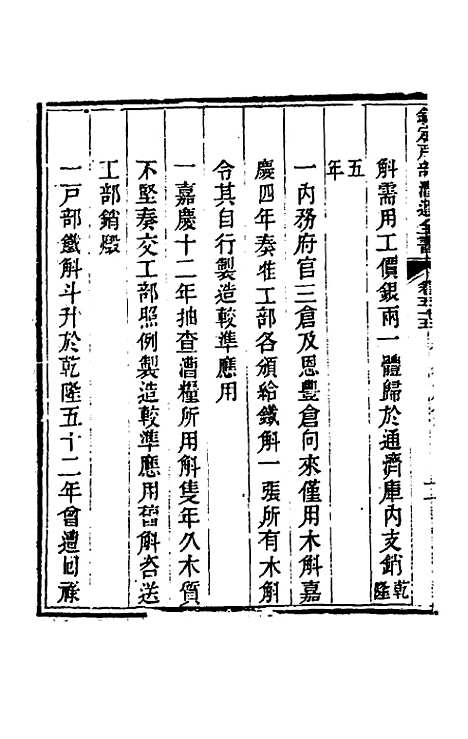 欽定戶部漕運全書 卷五十五
斛需用工價銀兩一體歸於通濟庫內支銷乾隆
五年
一內務府官三倉及恩豐倉向來僅用木斛嘉
慶四年奏准工部各頒給鐵斛一張所有木斛
令其自行製造較準應用
一嘉慶十二年抽查漕糧所用斛隻年久木質
不堅奏交工部照例製造較準應用舊斛咨送
工部銷燬
一戸部鐵斛斗升於乾隆五十二年曾遭回祿